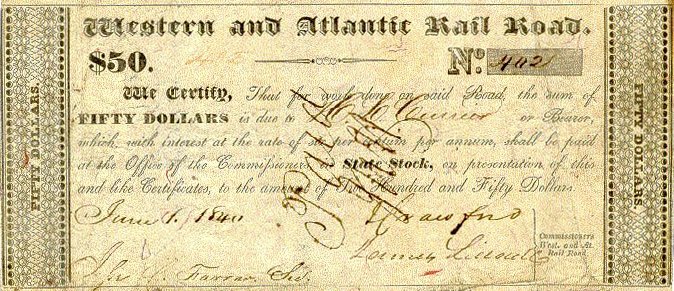 Western and Atlantic Rail Road.
$50.
No. 402
We Certify, That for work done on said Road, the sum of
FIFTY DOLLARS is due to or Bearer,
which, with interest at the rate of six per centum per annum, shall be paid
at the Office of the Commissioners in State Stock, on presentation of this
and like Certificates, to the amount of Two Hundred and Fifty Dollars.
June 1. 1840
Crawford
Commissioners
West. and At.
Rail Road.
Farrar, Sec.
FIFTY DOLLARS.
FIFTY DOLLARS.